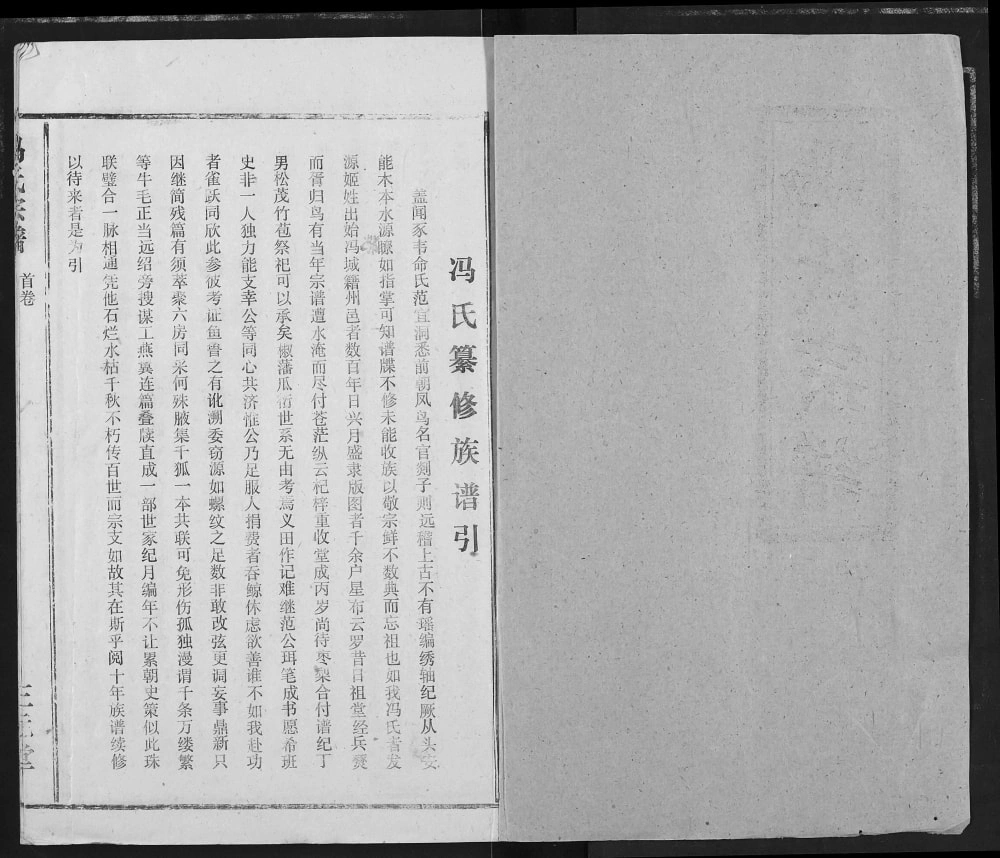 冯氏纂修族谱引
盖闻豕韦命氏范宜洞悉前朝凤鸟名官剡子则远稽上古不有瑶编绣轴纪厥从头安
能木本水源瞭如指掌可知谱牒不修未能收族以敬宗鲜不数典而忘祖也如我冯氏者发
源姬姓出始冯城籍州邑者数百年日兴月盛隶版图者千余户星布云罗昔日祖堂经兵燹
而胥归乌有当年宗谱遭水淹而尽付苍茫纵云杞梓重收堂成丙岁尚待枣梨合付谱纪丁
男松茂竹苞祭祀可以承矣椒藩瓜衍世系无由考焉义田作记难继范公珥笔成书愿希班
史非一人独力能支幸公等同心共济惟公乃足服人捐费者吞鲸休虑欲善谁不如我赴功
者雀跃同欣此参彼考证鱼晋之有讹溯委穷源如螺纹之足数非敢改弦更调妄事鼎新只
因继简残篇有须萃聚六房同采何殊腋集千狐一本共联可免形伤孤独漫谓千条万缕繁
等牛毛正当远绍旁搜谋工燕翼连篇叠牍直成一部世家纪月编年不让累朝史策似此珠
联璧合一脉相通凭他石烂水枯千秋不朽传百世而宗支如故其在斯乎阅十年族谱续修
以待来者是为引
冯氏宗谱
首卷
三元堂